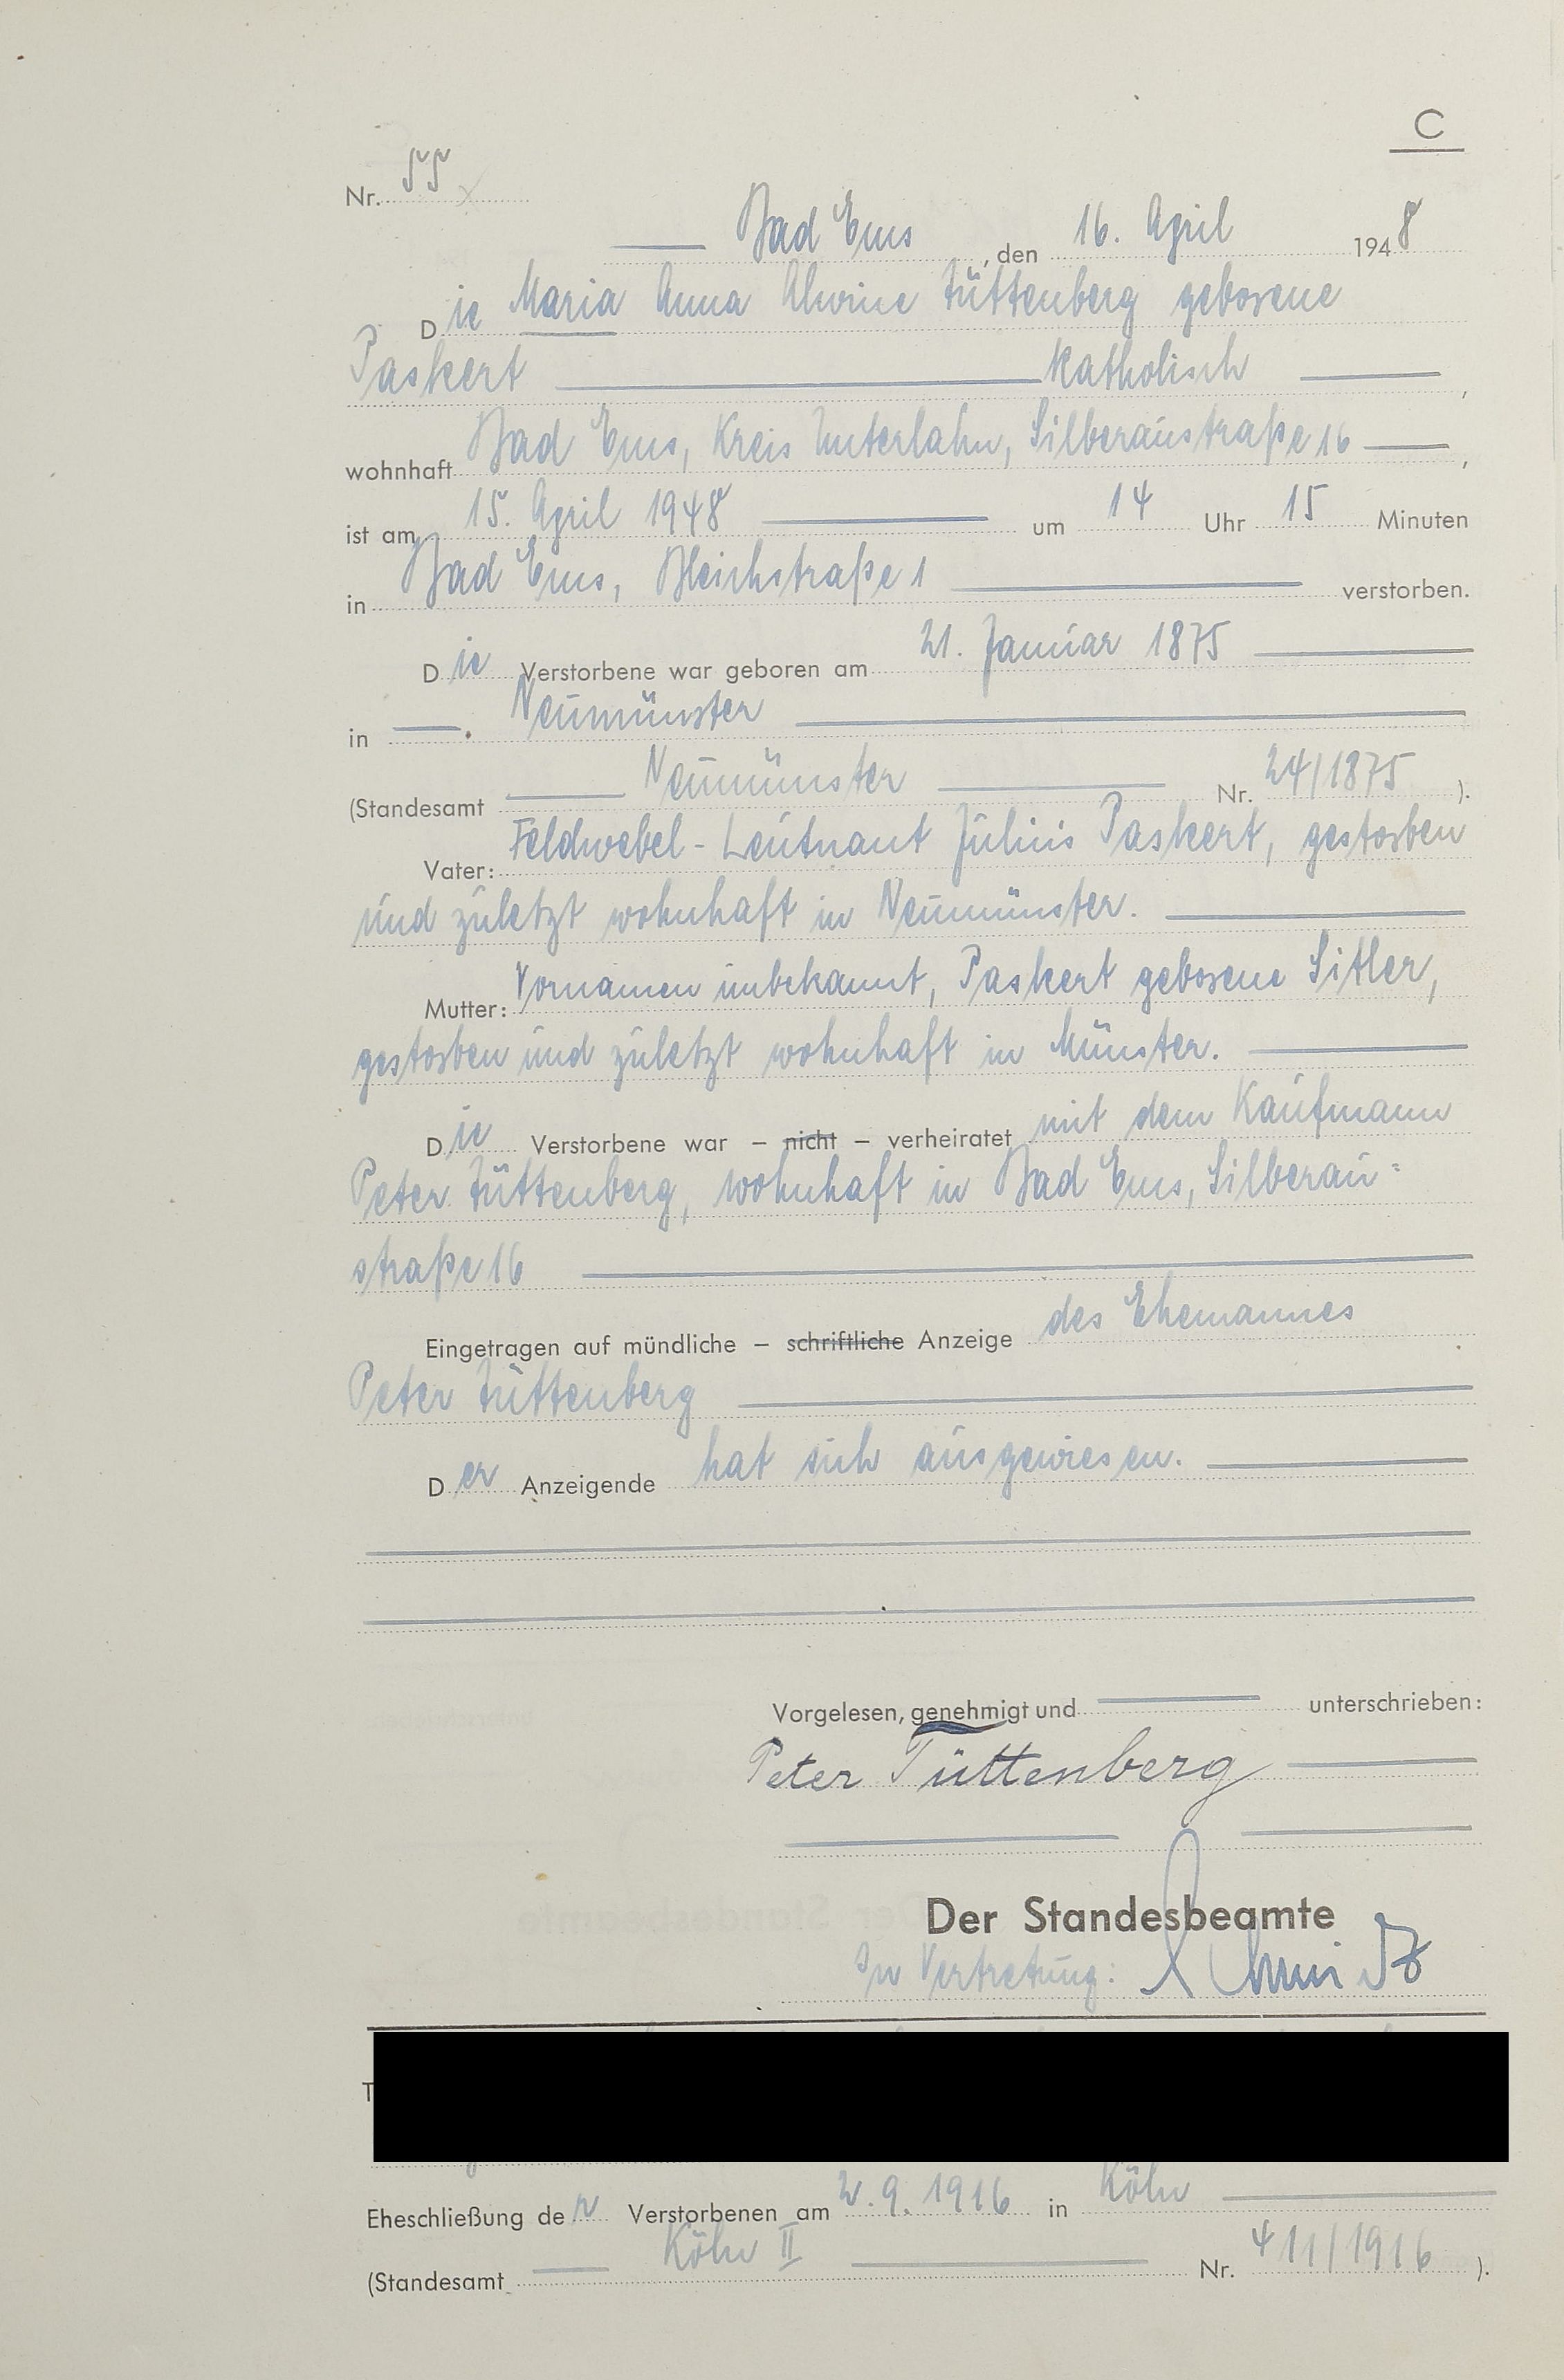 C
Nr. 55
Bad Ems, den 16. April 1948
Die Maria Anna Alwine Tüttenberg geborene
Paskert katholisch,
wohnhaft Bad Ems, Kreis Unterlahn, Silberaustraße 16,
ist am 15. April 1948 um 14 Uhr 15 Minuten
in Bad Ems, Bleichstraße 1 verstorben.
Die Verstorbene war geboren am 21. Januar 1875
in Neumünster
(Standesamt Neumünster Nr. 24/1875).
Vater: Feldwebel-Leutnant Julius Paskert, gestorben
und zuletzt wohnhaft in Neumünster.
Mutter: Vornamen unbekannt, Paskert geborene Sitler,
gestorben und zuletzt wohnhaft in Münster.
Die Verstorbene war – nicht – verheiratet mit dem Kaufmann
Peter Tüttenberg, wohnhaft in Bad Ems, Silberau=
straße 16
Eingetragen auf mündliche – schriftliche Anzeige des Ehemannes
Peter Tüttenberg
Der Anzeigende hat sich ausgewiesen.
Vorgelesen, genehmigt und unterschrieben:
Peter Tüttenberg
Der Standesbeamte
In Vertretung:
Eheschließung der Verstorbenen am 2.9.1916 in Köln
(Standesamt Köln II Nr. 411/1916).